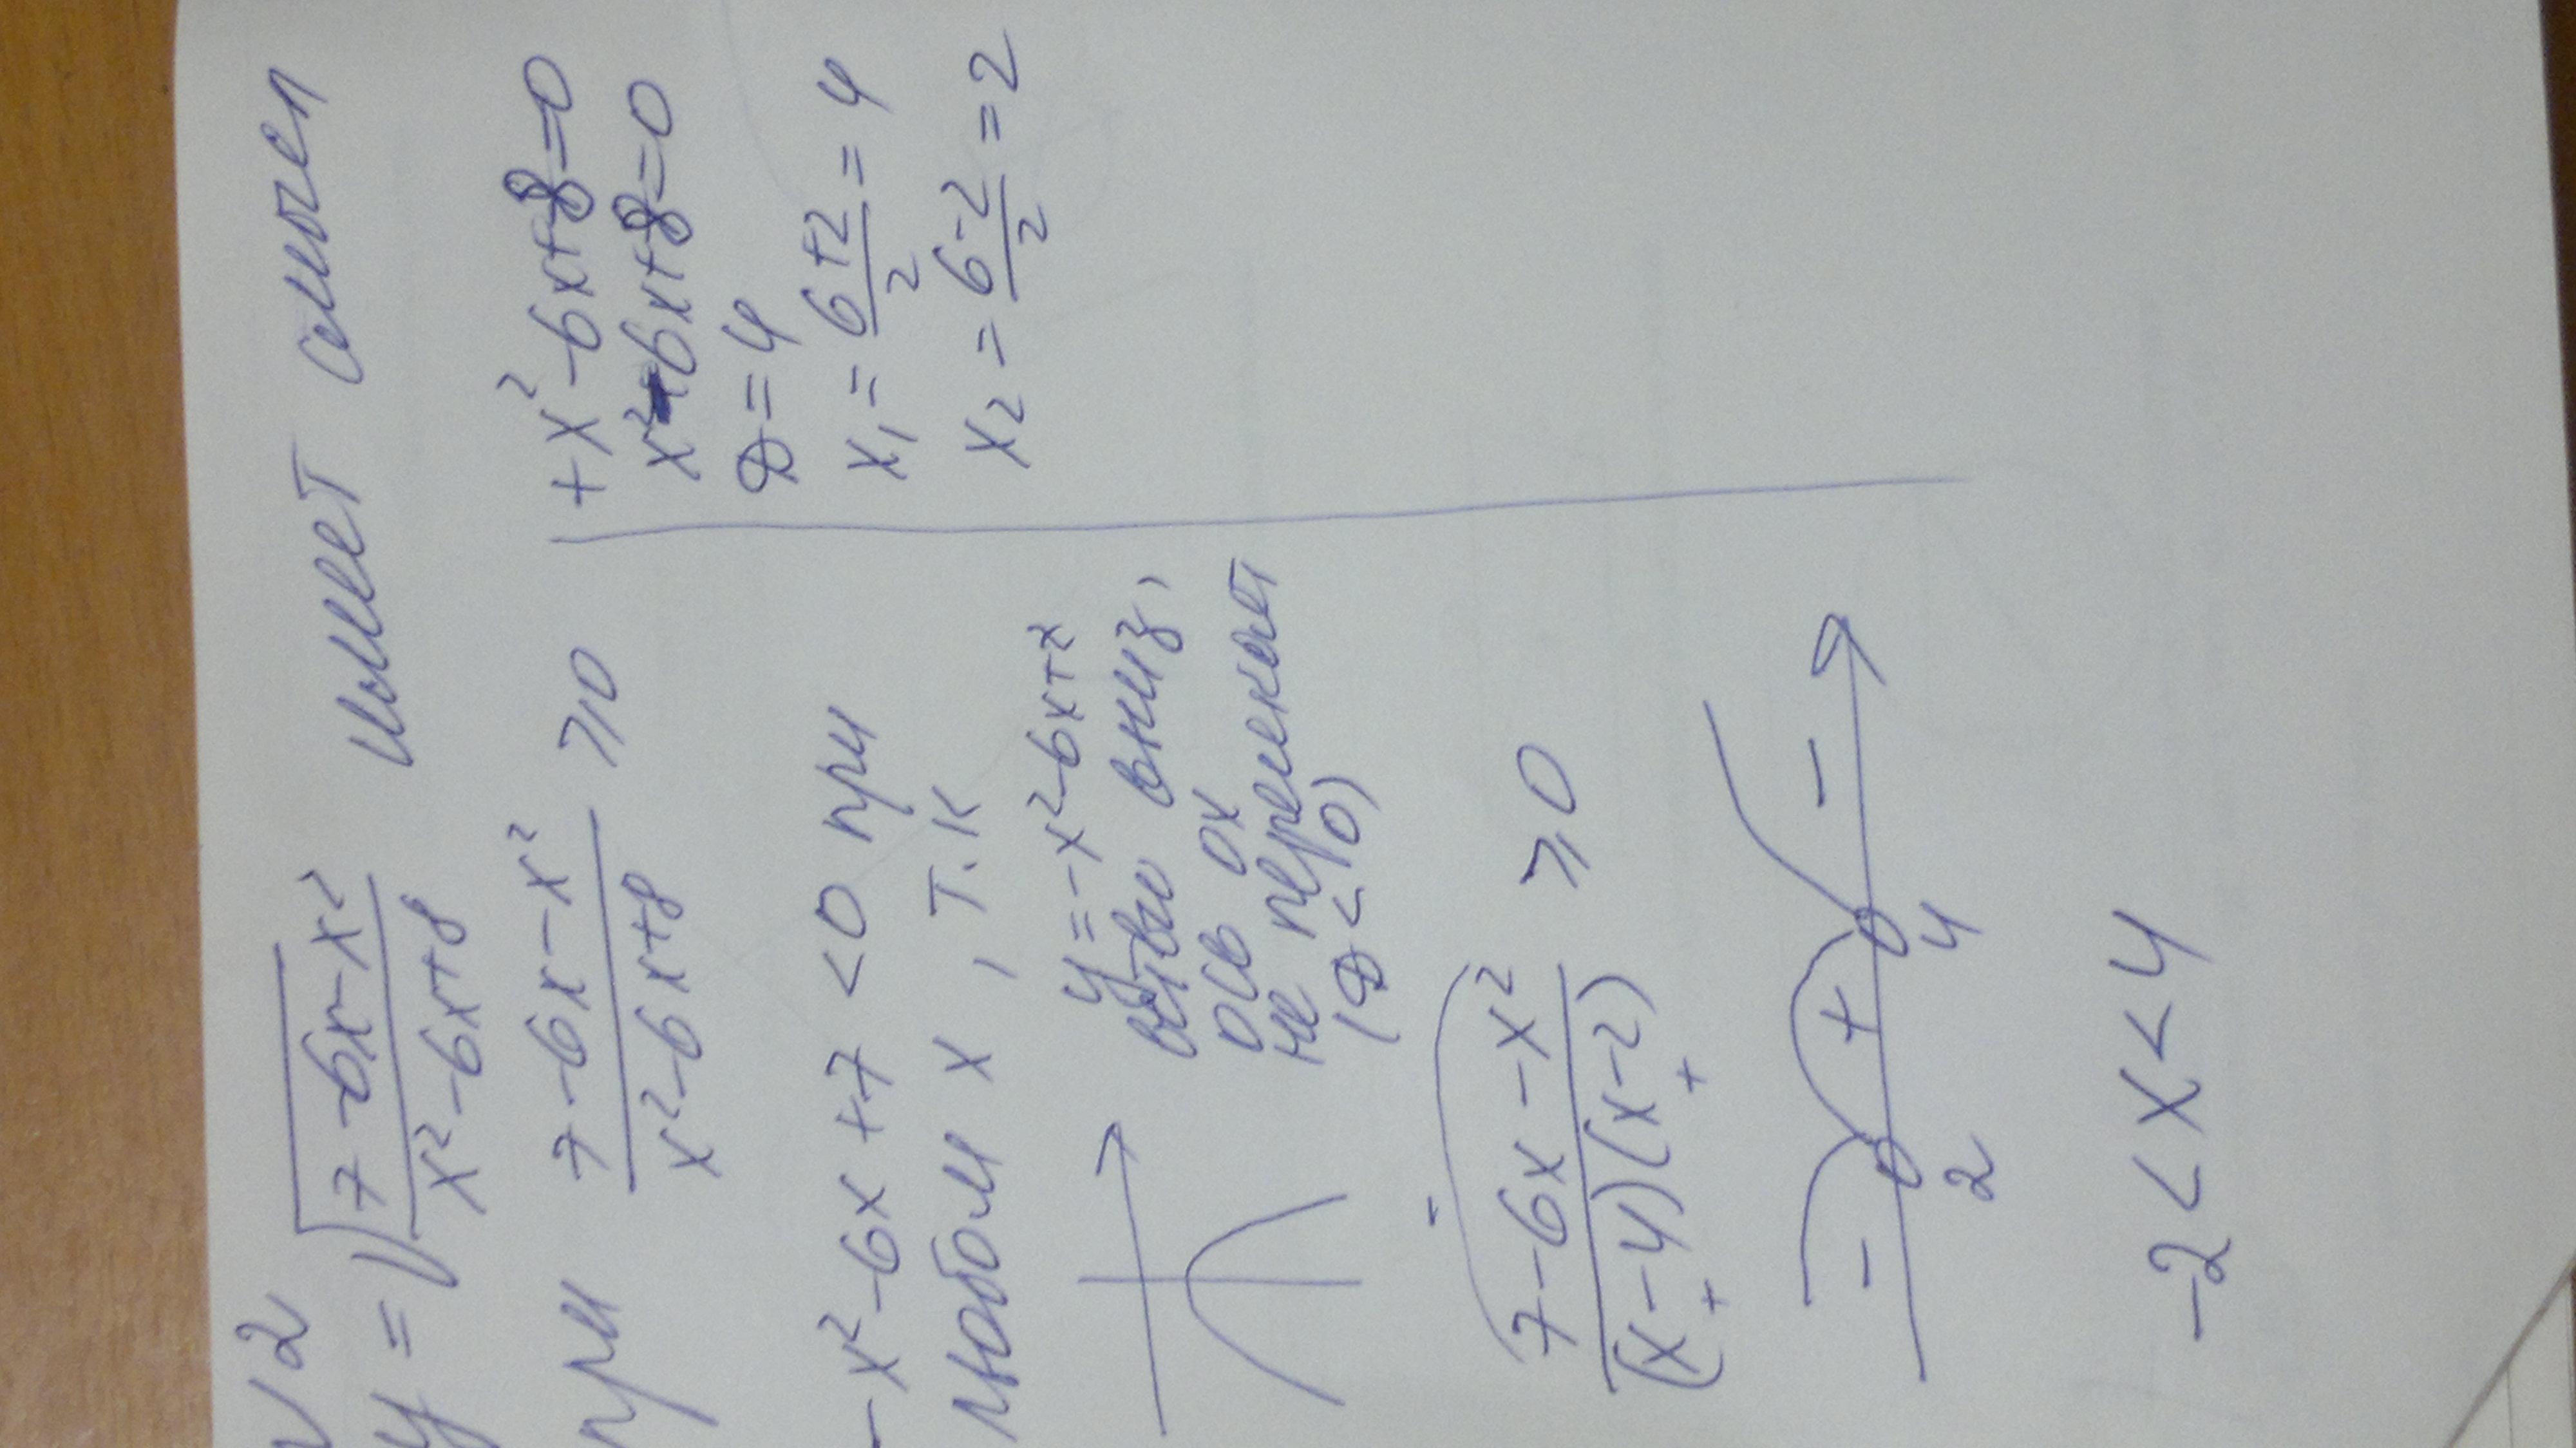 √2
y = √(7-6x-x²)/(x²-6x+8) имеет смысл
при (7-6x-x²)/(x²-6x+8) ⩾0
-x²-6x+7 <0 при
любом x , т.к
y=-x²-6x+7
ветви вниз,
ось ox
не пересекает
(D<0)
(7-6x-x²)/((x-4)(x-2)) ⩾0
-
+ +
- + -
2 4
-2<x<4
+x²-6x+8=0
x²-6x+8=0
D=4
x₁=(6+2)/2=4
x₂=(6-2)/2=2